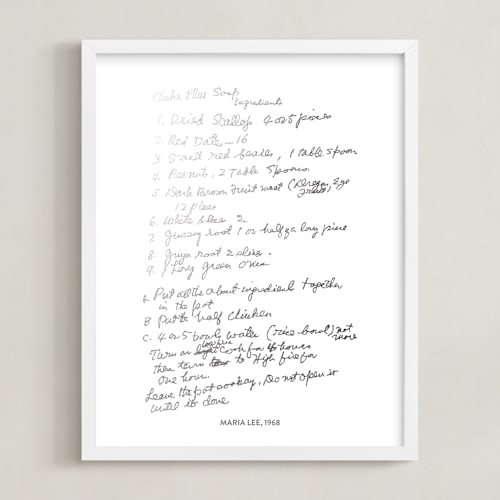 Ingredients
1. Dried Scallops 4 or 5 pieces
2. Red Dates — 16
3. Small red berries, 1 table spoon
4. Peanuts, 2 Table Spoons
5. Dark Brown Fruit meat (Dragon Eye
12 pieces
6. White 2
7. root 1 or half a long piece
8. root 2 slice.
9. 1 Long green Onion
A. Put all the about ingredient together
in the pot
B Put the half chicken
C. 4 or 5 bowls water (rice bowl) not
more
Turn on low fire cook for hours
then turn to High fire for
One hour.
Leave the pot , Do not open it
until it done
MARIA LEE, 1968